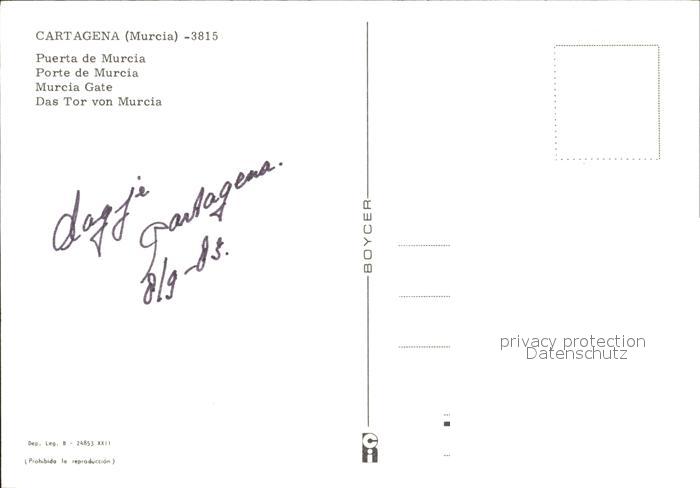 CARTAGENA (Murcia) -3815
Puerta de Murcia
Porte de Murcia
Murcia Gate
Das Tor von Murcia
dagje
Cartagena.
8/9-83.
BOYCER
privacy protection
Datenschutz
Dep. Leg. B - 24853 XXII
(Prohibida la reproducción)